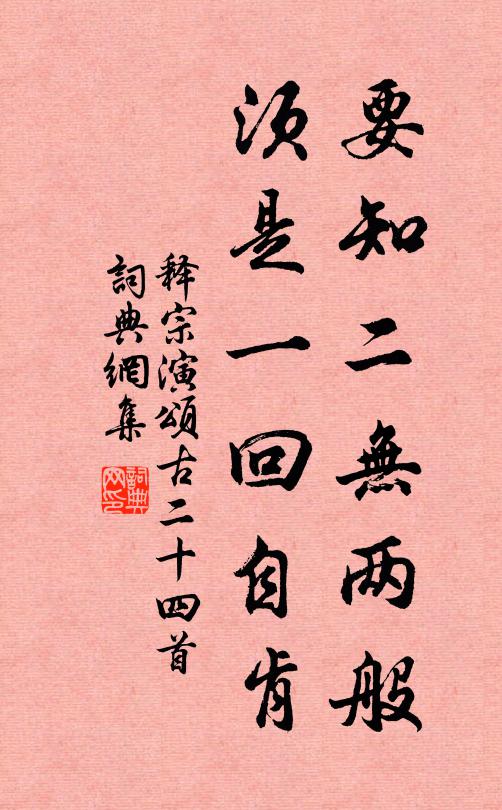 要知二無两般
須是一回自肯
释宗演頌古二十四首
詞典網集
詞典网印